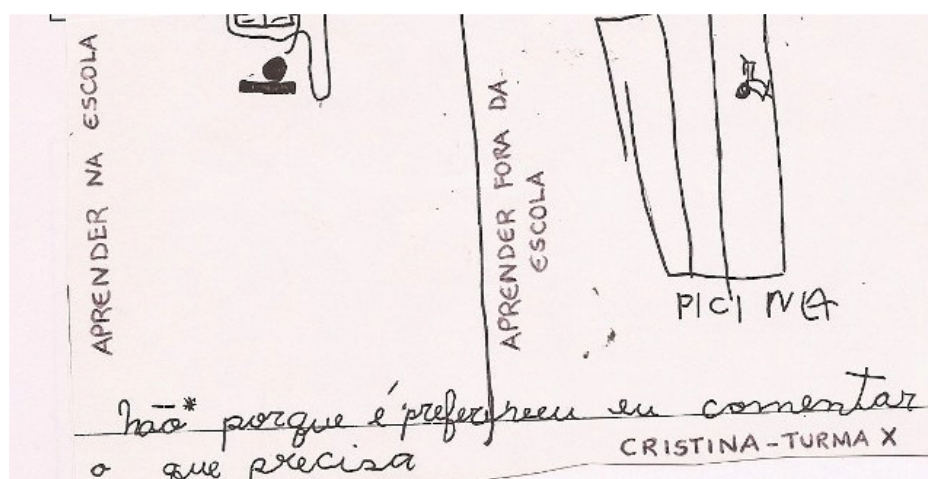 APRENDER NA ESCOLA
APRENDER FORA DA
ESCOLA
PICINA
não* porque é comentar
o que precisa
CRISTINA - TURMA X